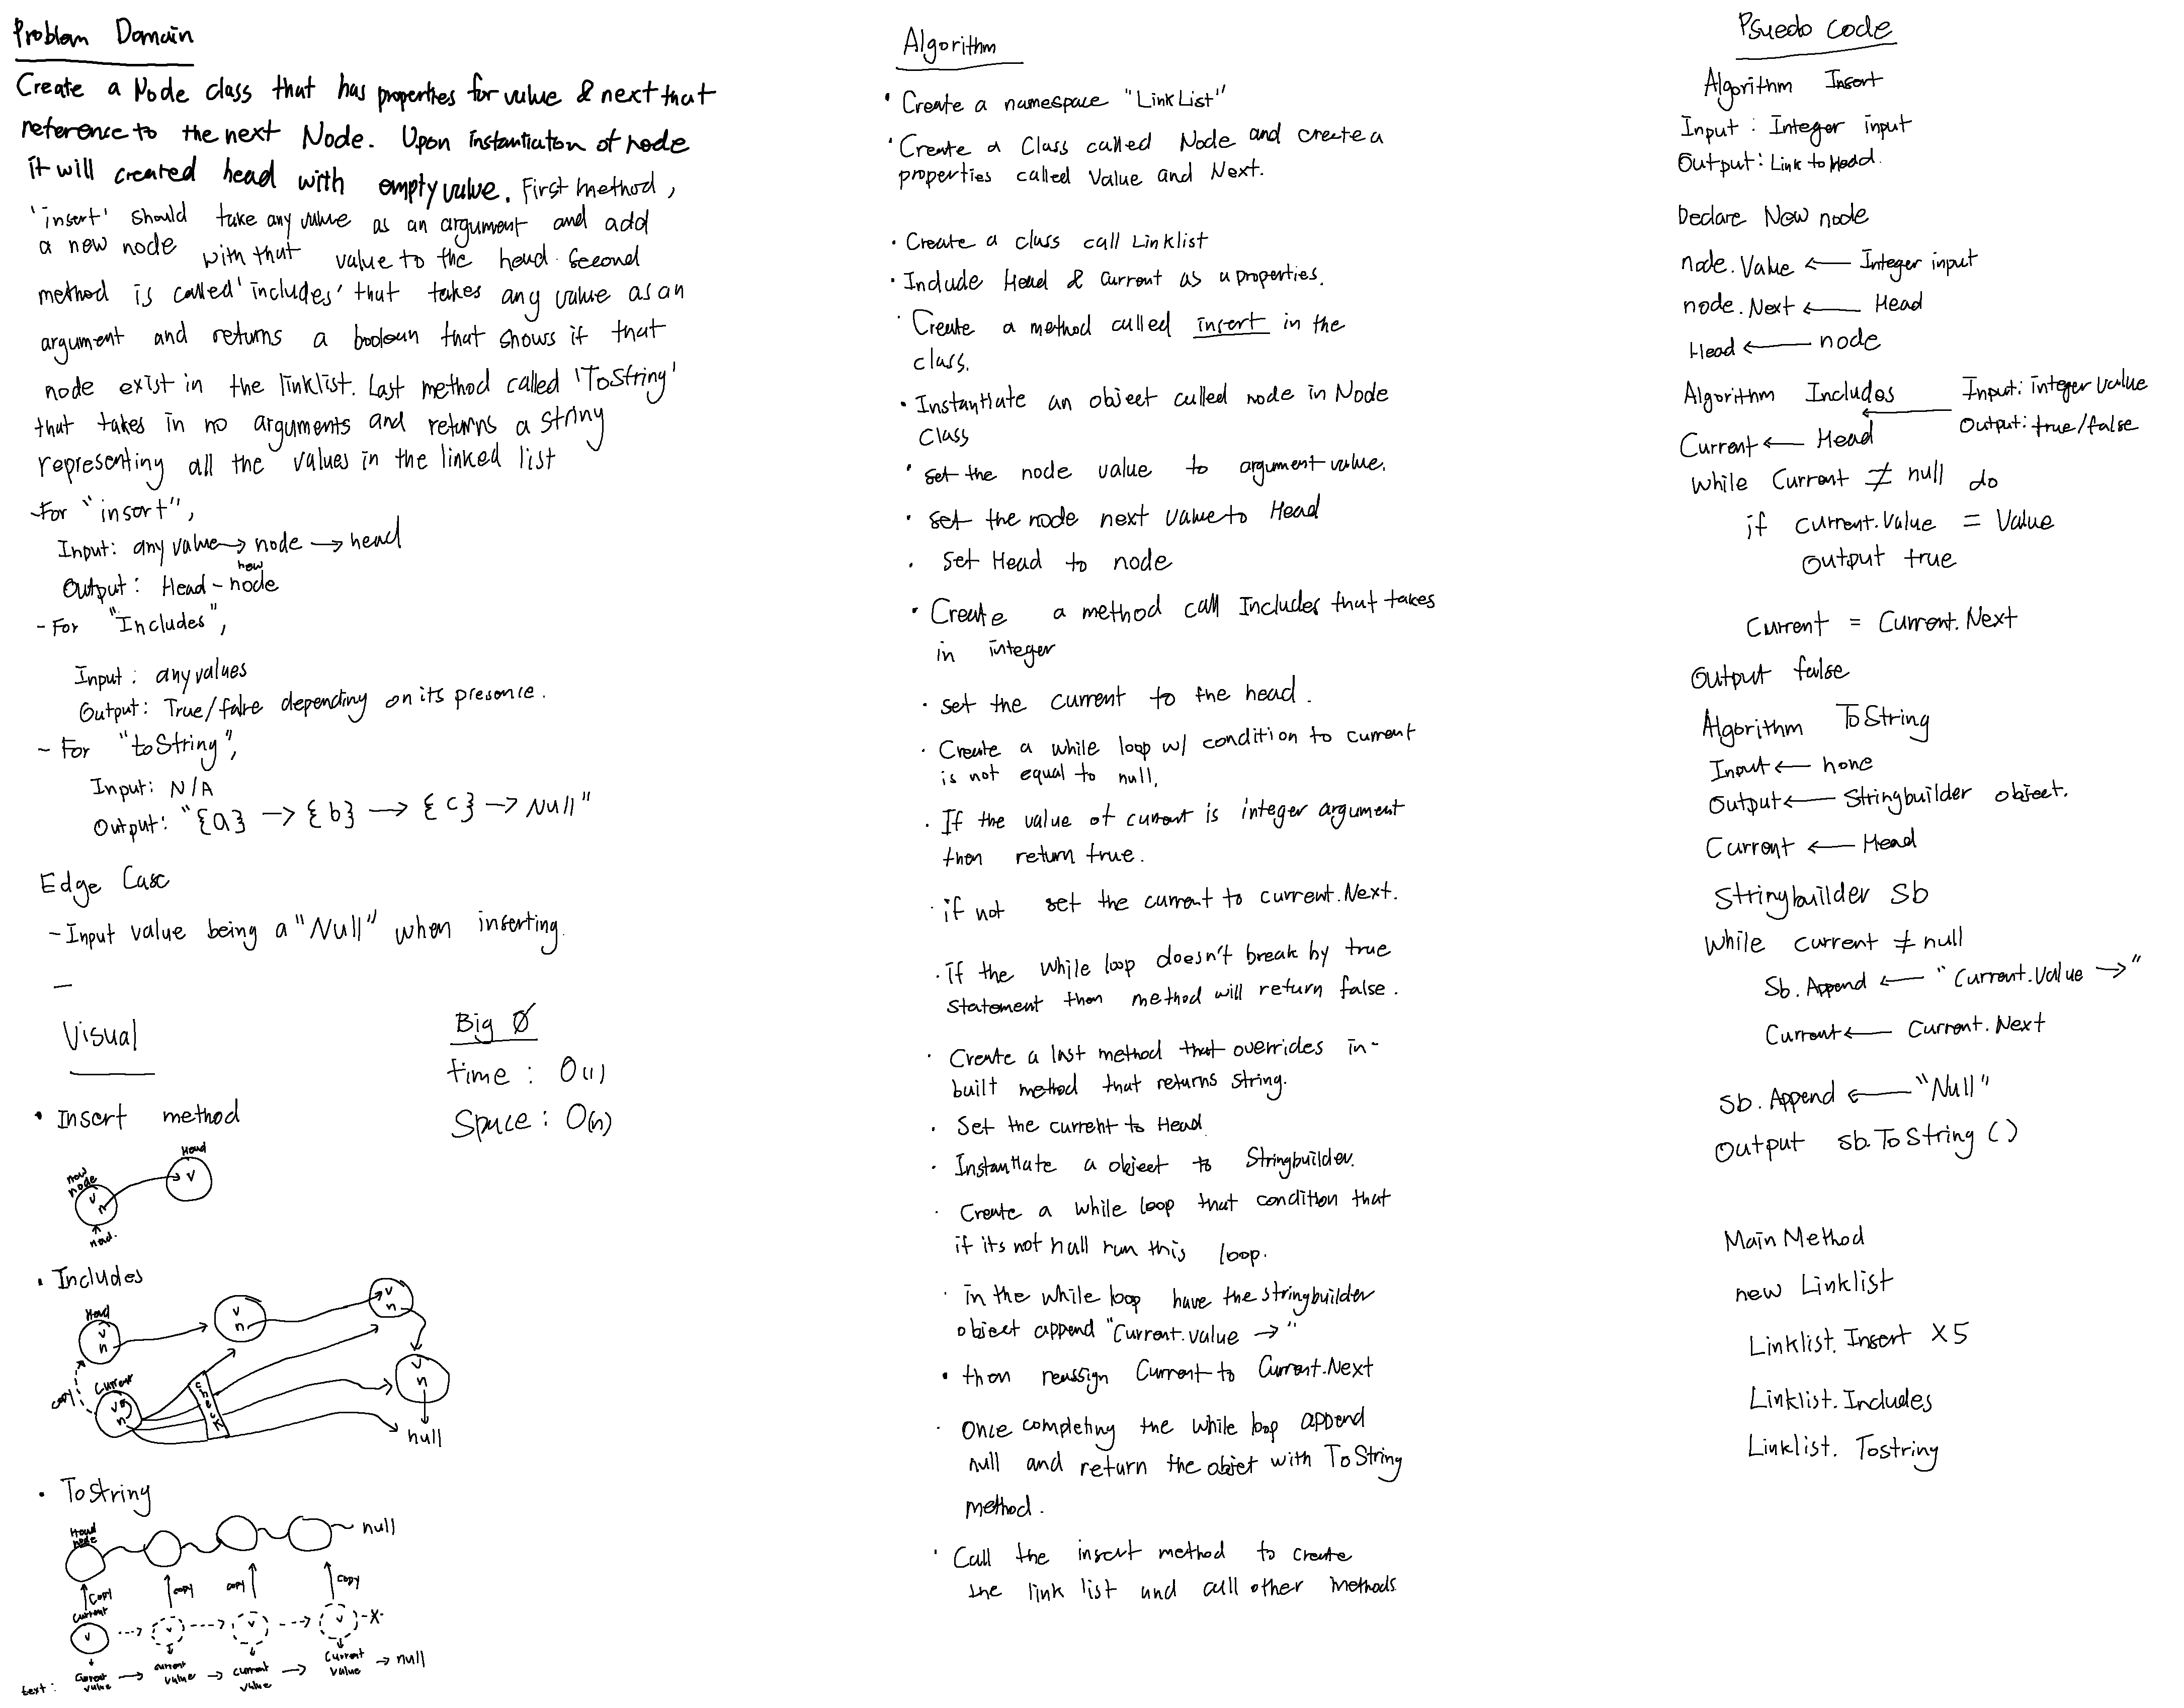 Problem Domain
Create a Node class that has properties for value & next that
reference to the next Node. Upon instantiation of node
it will created head with empty value. First method,
'insert' should take any value as an argument and add
a new node with that value to the head. Second
method is called 'includes' that takes any value as an
argument and returns a boolean that shows if that
node exist in the linklist. Last method called 'ToString'
that takes in no arguments and returns a string
representing all the values in the linked list
-For "insert",
Input: any value → node → head
new
Output: Head - node
- For "Includes",
Input: any values
Output: True/false depending on its presence.
- For "toString",
Input: N/A
Output: "{a} → {b} → {c} → Null"
Edge Case
- Input value being a "Null" when inserting.
-
Visual
• Insert method
Head
new node
v
v
n
head.
• Includes
Head
v
n
v
n
v
n
v
n
copy
Current
v
n
check
null
• ToString
Head node
null
copy
copy
copy
copy
current
v
v
v
v
-X-
text: Current value → current value → current value → Current value → null
Big O
time: O(1)
Space: O(n)
Algorithm
• Create a namespace "LinkList"
• Create a Class called Node and create a
properties called Value and Next.
• Create a class call Linklist
• Include Head & Current as a properties.
• Create a method called insert in the
class.
• Instantiate an object called node in Node
Class
• Set the node value to argument value.
• Set the node next value to Head
• Set Head to node
• Create a method call Includes that takes
in integer
• set the current to the head.
• Create a while loop w/ condition to current
is not equal to null.
• If the value of current is integer argument
then return true.
• if not set the current to current.Next.
• if the while loop doesn't break by true
statement then method will return false.
• Create a last method that overrides in-
built method that returns string.
• Set the current to Head
• Instantiate a object to Stringbuilder.
• Create a while loop that condition that
if its not null run this loop.
• in the while loop have the stringbuilder
object append "Current.value →"
• then reassign Current to Current.Next
• Once completing the while loop append
null and return the objet with ToString
method.
• Call the insert method to create
the link list and call other methods
Psuedo Code
Algorithm Insert
Input: Integer input
Output: Link to Head.
Declare New node
node.Value ← Integer input
node.Next ← Head
Head ← node
Algorithm Includes
Input: integer value
Output: true/false
Current ← Head
While Current ≠ null do
if current.Value = Value
Output true
Current = Current.Next
Output false
Algorithm ToString
Input ← none
Output ← Stringbuilder object.
Current ← Head
Stringbuilder Sb
While current ≠ null
Sb.Append ← "Current.Value →"
Current ← Current.Next
Sb.Append ← "Null"
Output sb.ToString()
Main Method
new Linklist
Linklist.Insert X5
Linklist.Includes
Linklist.Tostring